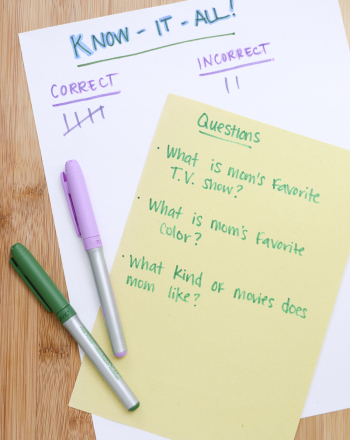 KNOW-IT-ALL!
CORRECT
INCORRECT
Questions
· What is mom's Favorite
T.V. show?
· What is mom's Favorite
Color?
· What Kind of movies does
mom like?